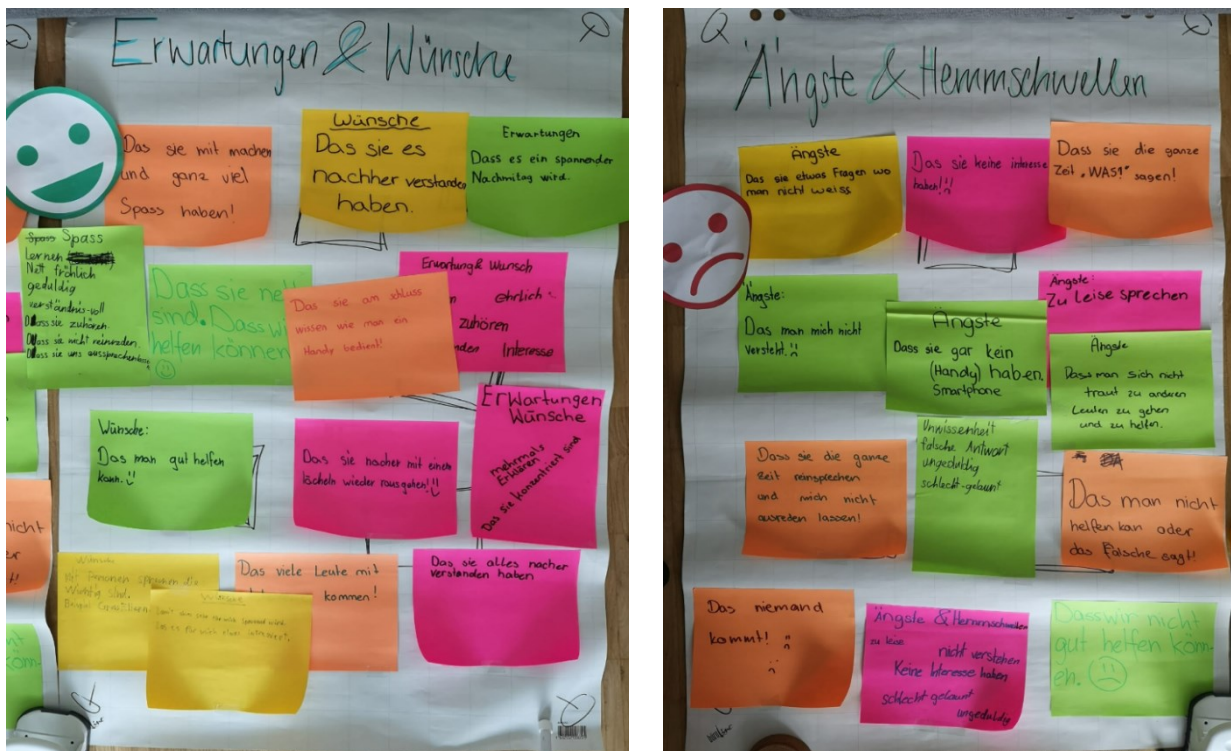 Erwartungen & Wünsche
Das sie mit machen
und ganz viel
Spass haben!
Wünsche
Das sie es
nachher verstanden
haben.
Erwartungen
Dass es ein spannender
Nachmitag wird.
Spass
Lernen
Nett fröhlich
geduldig
verständnis-voll
Dass sie zuhören.
Dass sie nicht reinreden.
Dass sie uns
Dass sie ne
sind. Dass wi
helfen können
Das sie am schluss
wissen wie man ein
Handy bedient!
Erwartung & Wunsch
ehrlich
zuhören
nden Interesse
Erwartungen
Wünsche
mehrmals
Erklären
Das sie konzentriert sind
Wünsche:
Das man gut helfen
kann.
Das sie nacher mit einem
lächeln wieder rausgehen!!!
Wünsche
mit Personen sprechen die
Wichtig sind.
Das viele Leute mit
kommen!
Wünsche
Das sie alles nacher
verstanden haben
nicht
er
t!
Ängste & Hemmschwellen
Ängste
Das sie etwas Fragen wo
man nicht weiss
Das sie keine interesse
haben!!
Dass sie die ganze
Zeit „WAS?" sagen!
Ängste:
Das man mich nicht
versteht.
Ängste
Dass sie gar kein
(Handy) haben.
Smartphone
Ängste:
Zu Leise sprechen
Ängste
Dass man sich nicht
traut zu anderen
Leuten zu gehen
und zu helfen.
Dass sie die ganze
Zeit reinsprechen
und mich nicht
ausreden lassen!
Unwissenheit
falsche Antwort
ungeduldig
schlecht-gelaunt
Das man nicht
helfen kan oder
das Falsche sagt!
Das niemand
kommt!
Ängste & Hemmschwellen
zu leise
nicht verstehen
Keine Interesse haben
schlecht gelaunt
ungeduldig
Dass wir nicht
gut helfen könn-
en.